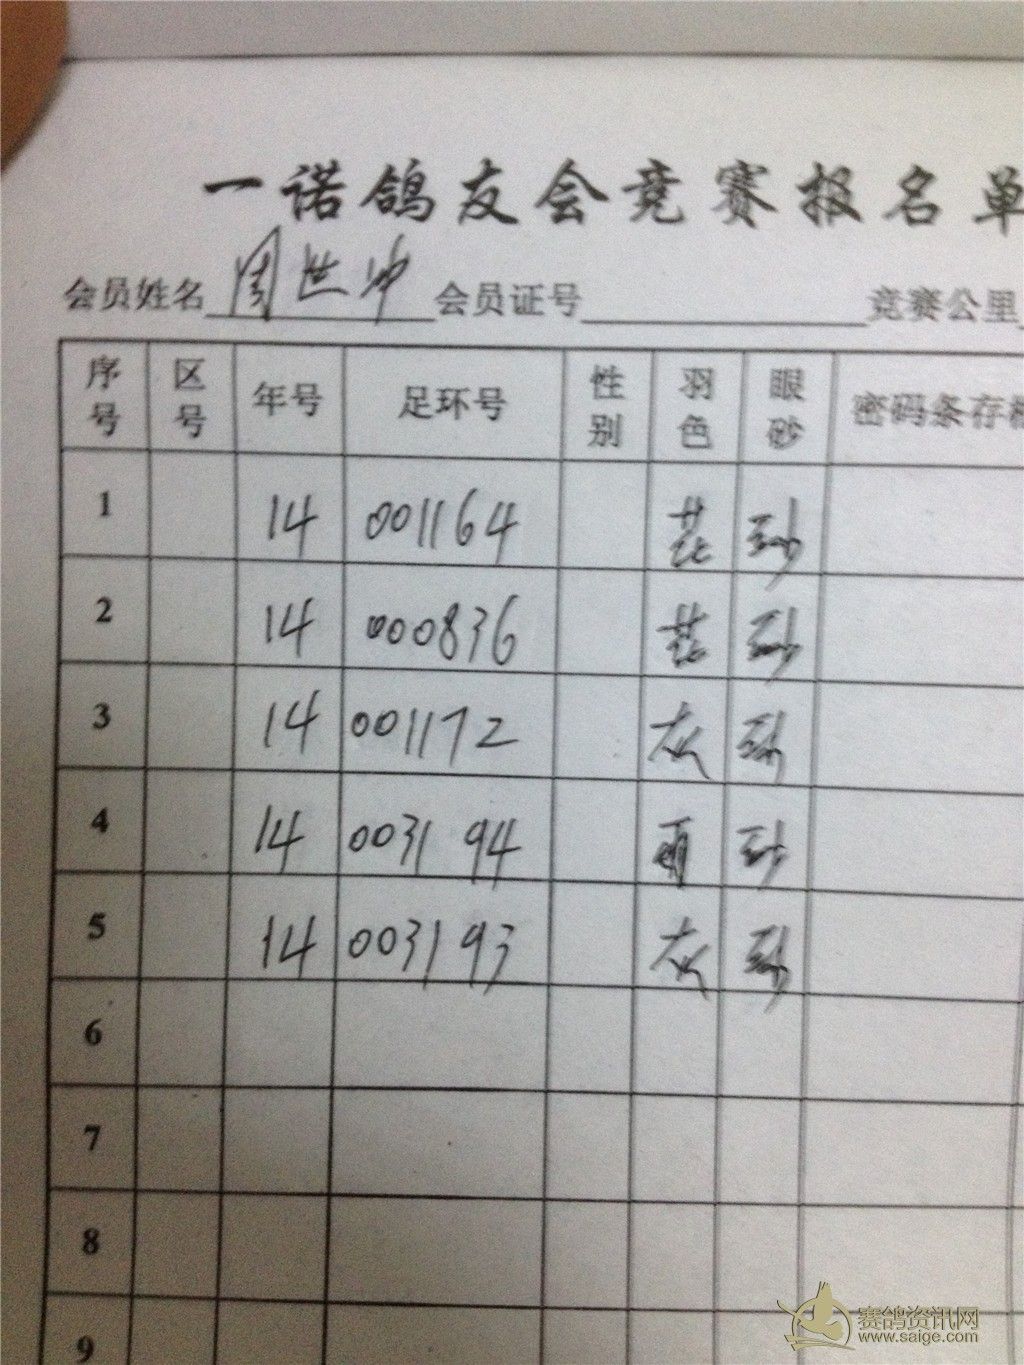 一诺鸽友会竞赛报名单
会员姓名 周世冲 会员证号 竞赛公里
序号 区号 年号 足环号 性别 羽色 眼砂 密码条存
1 14 001164 花 砂
2 14 000836 花 砂
3 14 001172 灰 砂
4 14 003194 雨 砂
5 14 003193 灰 砂
6
7
8
9
赛鸽资讯网
www.saige.com